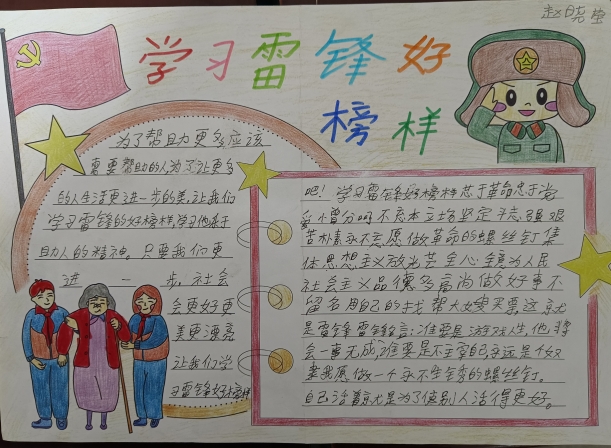 赵晓莹
学习雷锋好
榜样
为了帮助更多应该
需要帮助的人为了让更多
的人生活更进一步的美,让我们
学习雷锋的好榜样,学习他乐于
助人的精神。只要我们更
进一步,社会
会更好更
美更漂亮
让我们学
习雷锋好榜样
吧!学习雷锋好榜样忠于革命忠于党
爱憎分明不忘本立场坚定斗志强艰
苦朴素永不忘愿做革命的螺丝钉集
体思想主义放光芒全心全意为人民
社会主义品德多高尚做好事不
留名用自己的钱帮大嫂买票这就
是雷锋雷锋名言:谁要是游戏人生,他将
会一事无成,谁要是不主宰自己,永远是个奴
隶我愿做一个永不生锈的螺丝钉。
自己活着就是为了使别人活得更好。